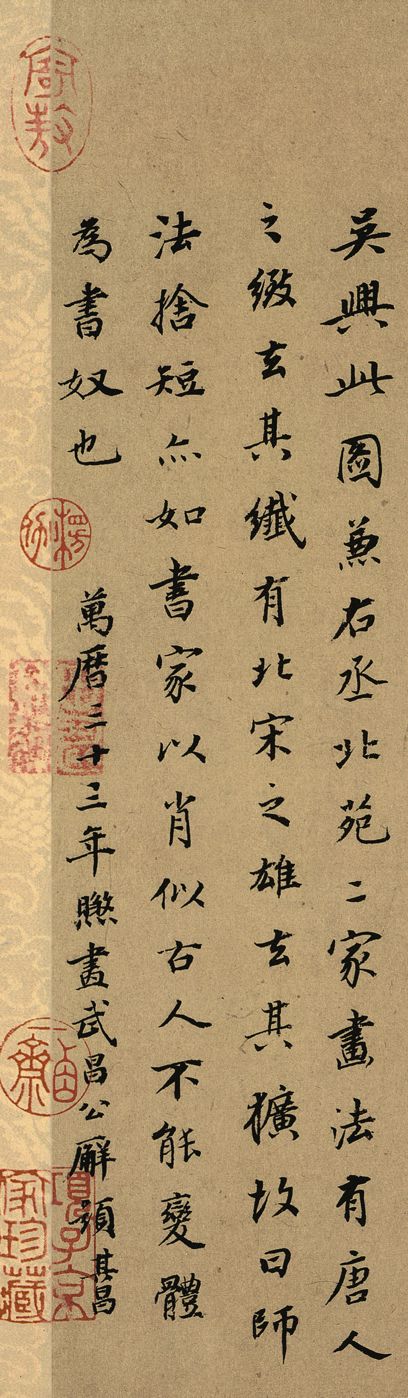 吳興此圖兼右丞北苑二家畫法有唐人
之緻去其纖有北宋之雄去其獷故曰師
法捨短亦如書家以肖似古人不能變體
為書奴也 萬曆三十三年畫武昌公廨題其昌
檇李
項子京家珍藏